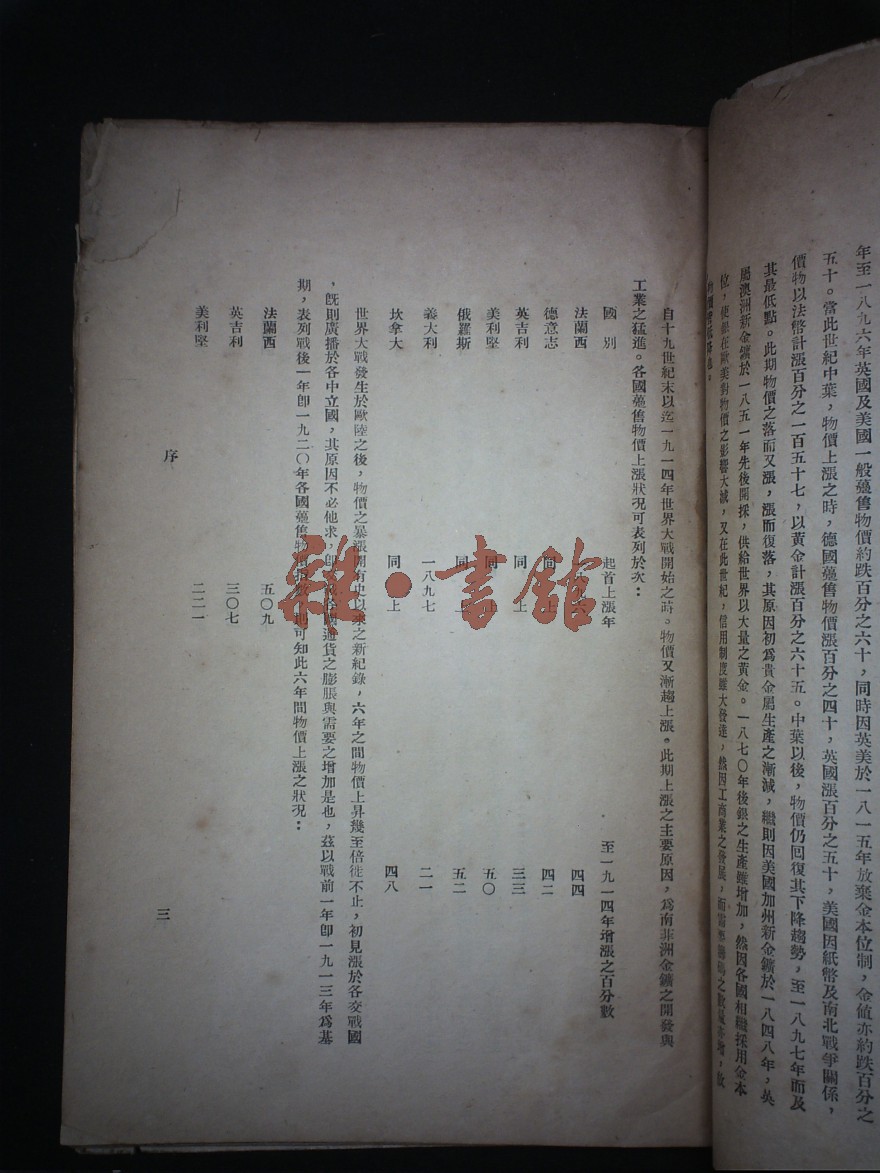 年至一八九六年英國及美國一般躉售物價約跌百分之六十，同時因英美於一八一五年放棄金本位制，金値亦約跌百分之
五十。當此世紀中葉，物價上漲之時，德國躉售物價漲百分之四十，英國漲百分之五十，美國因紙幣及南北戰爭關係，
價物以法幣計漲百分之一百五十七，以黃金計漲百分之六十五。中葉以後，物價仍囘復其下降趨勢，至一八九七年而及
其最低點。此期物價之落而又漲，漲而復落，其原因初爲貴金屬生產之漸減，繼則因美國加州新金鑛於一八四八年，英
屬澳洲新金鑛於一八五一年先後開採，供給世界以大量之黃金。一八七〇年後銀之生產雖增加，然因各國相繼採用金本
位，使銀在歐美對物價之影響大減，又在此世紀，信用制度雖大發達，然因工商業之發展，而需要籌碼之數量亦增，故
自十九世紀末以迄一九一四年世界大戰開始之時。物價又漸趨上漲。此期上漲之主要原因，爲南非洲金鑛之開發與
工業之猛進。各國躉售物價上漲狀况可表列於次：
國別 起首上漲年 至一九一四年增漲之百分數
法蘭西 一八九六 四四
德意志 同上 四二
英吉利 同上 三三
美利堅 同上 五〇
俄羅斯 同上 五二
義大利 一八九七 二一
坎拿大 同上 四八
世界大戰發生於歐陸之後，物價之暴漲開有史以來之新紀錄，六年之間物價上昇幾至倍徙不止，初見漲於各交戰國
，旣則廣播於各中立國，其原因不必他求，卽各國通貨之膨脹與需要之增加是也，茲以戰前一年卽一九一三年爲基
期，表列戰後一年卽一九二〇年各國躉售物價指數，則可知此六年間物價上漲之狀况：
法蘭西 五〇九
英吉利 三〇七
美利堅 二二一
序
三
雜·書館